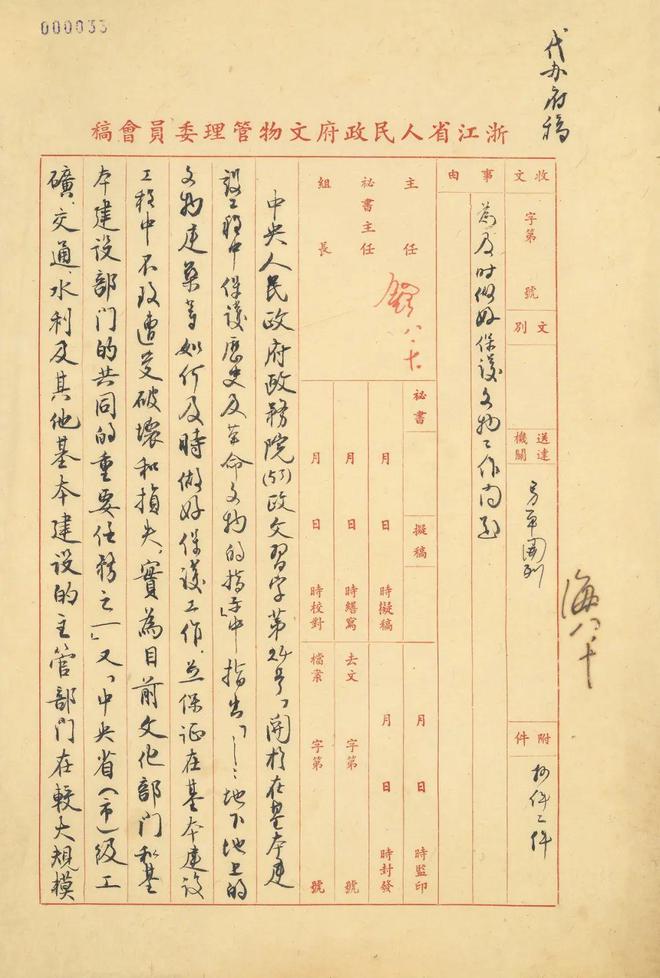 000033
代办府稿
浙江省人民政府文物管理委員會稿
收文 字第 號
文別
送達機關 另单開列
附件 抄件二件
事由
為及时做好保護文物工作问题
主任
秘書主任
組長
八.十
秘書
擬稿
月 日 時擬稿
月 日 時繕寫
月 日 時校對
月 日 時監印
月 日 時封發
去文 字第 號
檔案 字第 號
海八.十
中央人民政府政務院(53)政文習字第24号「関於在基本建
設工程中保護歷史及革命文物的指示」中指出「……地下地上的
文物建築等如何及時做好保護工作.並保证在基本建设
工程中不致遭受破壞和損失,實為目前文化部门和基
本建設部门的共同的重要任務之一」又「中央省(市)級工
礦、交通、水利及其他基本建设的主管部门在較大規模